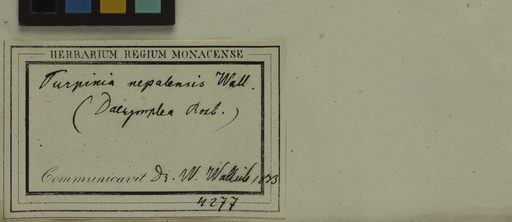 HERBARIUM REGIUM MONACENSE
Turpinia nepalensis Wall.
(Dalrymplea Roxb.)
Communicavit Dr. N. Wallich
4277